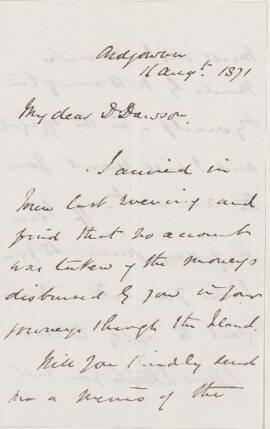 Ardgowan
16 Augt. 1871
My dear D. Dawson.
I arrived in
last evening and
find that no account
was taken of the moneys
disbursed by you in your
journeys through the Island.
Will you kindly send
me a memo of the